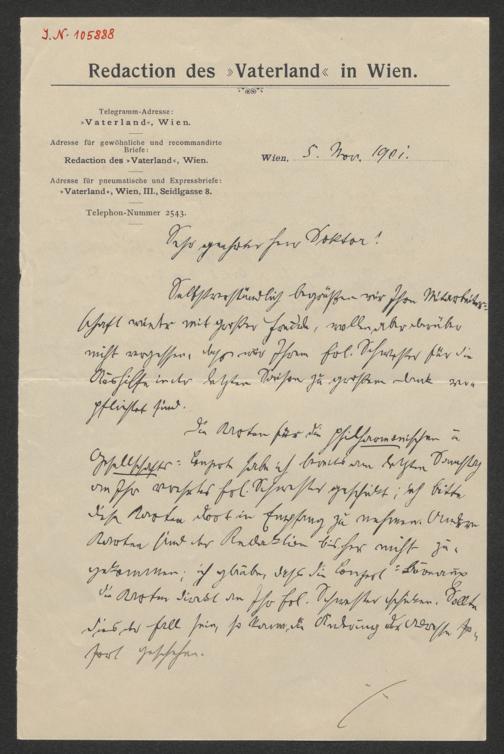 J.N. 105888
Redaction des »Vaterland« in Wien.
Telegramm-Adresse:
»Vaterland«, Wien.
Adresse für gewöhnliche und recommandirte
Briefe:
Redaction des »Vaterland«, Wien.
Adresse für pneumatische und Expressbriefe:
»Vaterland«, Wien, III., Seidlgasse 8.
Telephon-Nummer 2543.
Wien, 5. Nov. 1901.
Sehr geehrter Herr Doktor!
Selbstverständlich begrüßen wir Ihre Mitarbeiter-
schaft wieder mit großer Freude, wollen aber darüber
nicht vergessen, dass wir Ihrem Frl. Schwester für die
Aushilfe in der letzten Saison zu großem Dank ver-
pflichtet sind.
Die Karten für die philharmonischen u
Gesellschafts-Conzerte habe ich bereits am letzten Samstag
an Ihr Frl. Schwester geschickt; ich bitte
diese Karten dort in Empfang zu nehmen. Andere
Karten sind der Redaktion bisher nicht zu-
gekommen; ich glaube, dass die Conzert-Bureaux
die Karten direkt an Ihr Frl. Schwester schicken. Sollte
dies der Fall sein, so kann die Änderung der Adresse so-
fort geschehen.